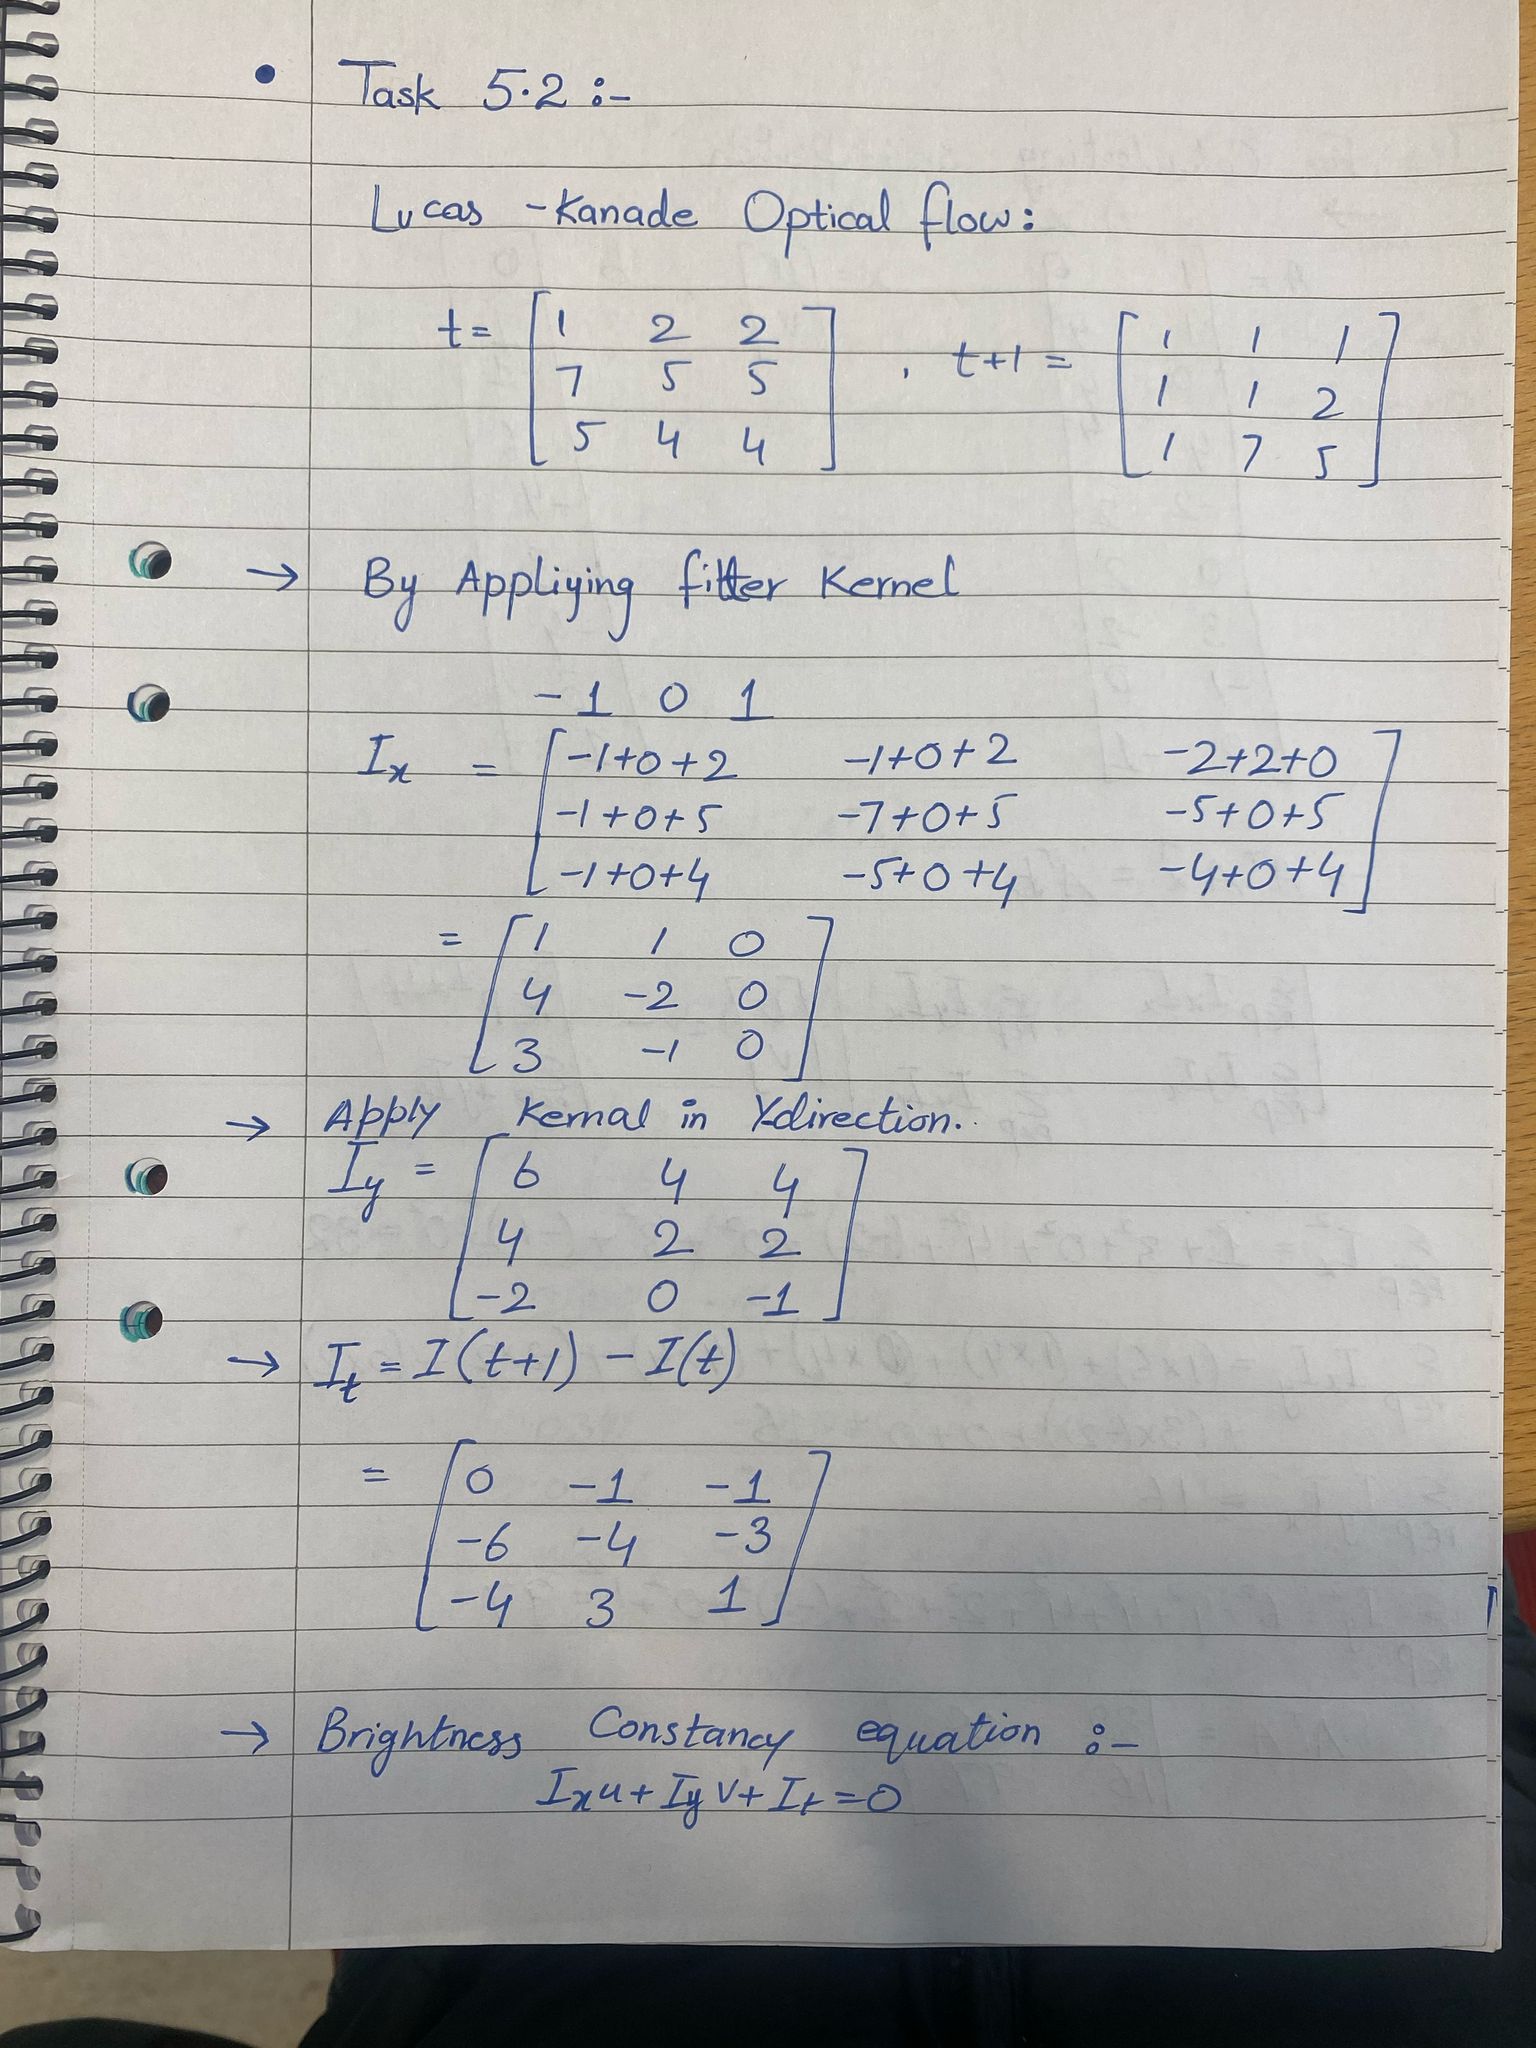 • Task 5.2 :-
Lucas -Kanade Optical flow:
t= [1 2 2
7 5 5
5 4 4] , t+1 = [1 1 1
1 1 2
1 7 5]
→ By Appliying fitter Kernel
-1 0 1
Ix = [-1+0+2 -1+0+2 -2+2+0
-1+0+5 -7+0+5 -5+0+5
-1+0+4 -5+0+4 -4+0+4]
= [1 1 0
4 -2 0
3 -1 0]
→ Apply Kernal in Y-direction.
Iy = [6 4 4
4 2 2
-2 0 -1]
→ It = I(t+1) - I(t)
= [0 -1 -1
-6 -4 -3
-4 3 1]
→ Brightness Constancy equation :-
Ixu+IyV+It=0